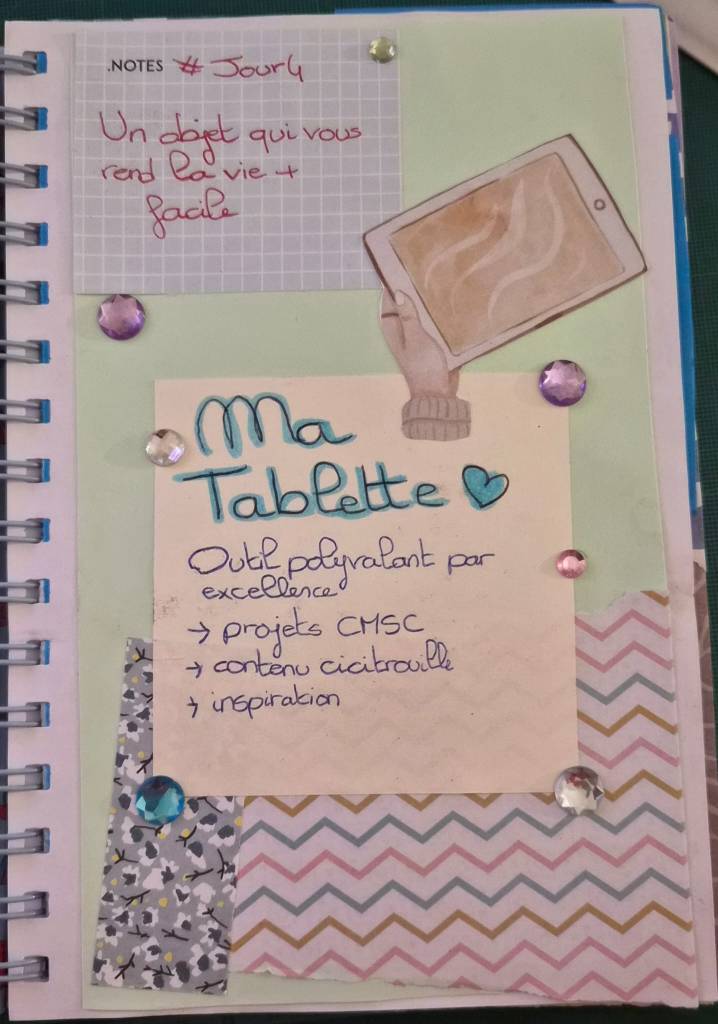 .NOTES # Jour 4
Un objet qui vous
rend la vie +
facile
Ma
Tablette
Outil polyvalant par
excellence
→ projets CMSC
→ contenu cicitrouille
→ inspiration